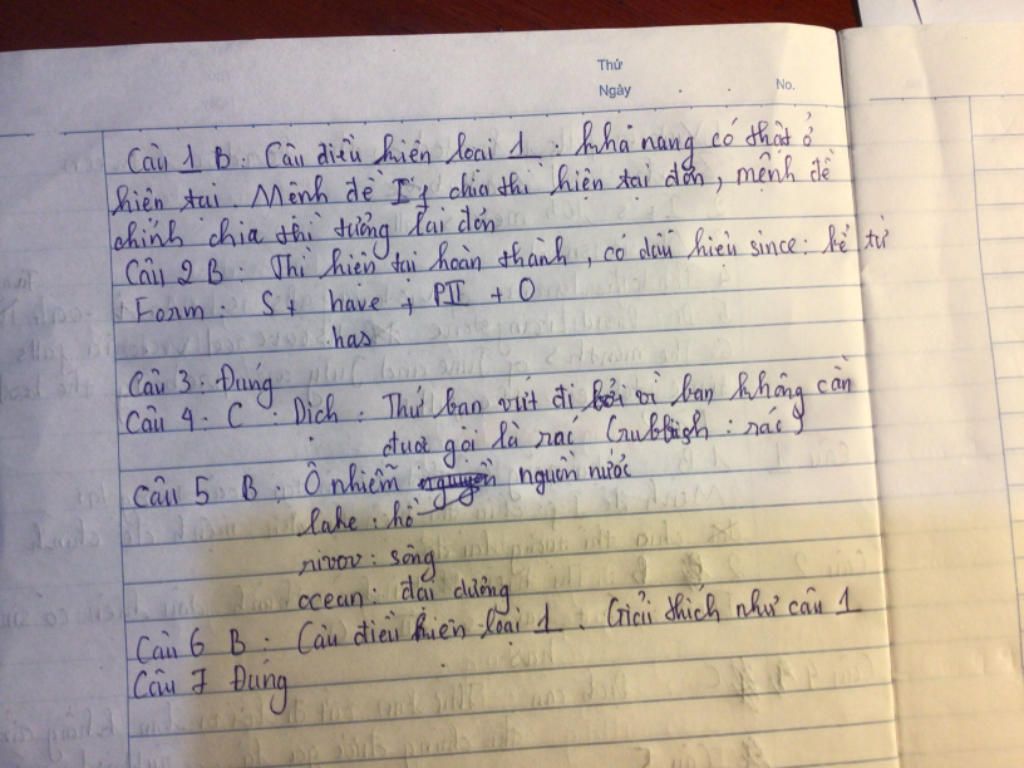 Thứ
Ngày . . No.
Câu 1 B: Câu điều kiện loại 1: khả năng có thật ở
hiện tại. Mệnh đề If chia thì hiện tại đơn, mệnh đề
chính chia thì tương lai đơn
Câu 2 B: Thì hiện tại hoàn thành, có dấu hiệu since: kể từ
Form: S + have + PII + O
has
Câu 3: Đúng
Câu 4: C: Dịch: Thứ bạn vứt đi bởi vì bạn không cần
được gọi là rác (rubbish: rác)
Câu 5 B: Ô nhiễm nguồn nước
lake: hồ
river: sông
ocean: đại dương
Câu 6 B: Câu điều kiện loại 1. Giải thích như câu 1
Câu 7 Đúng